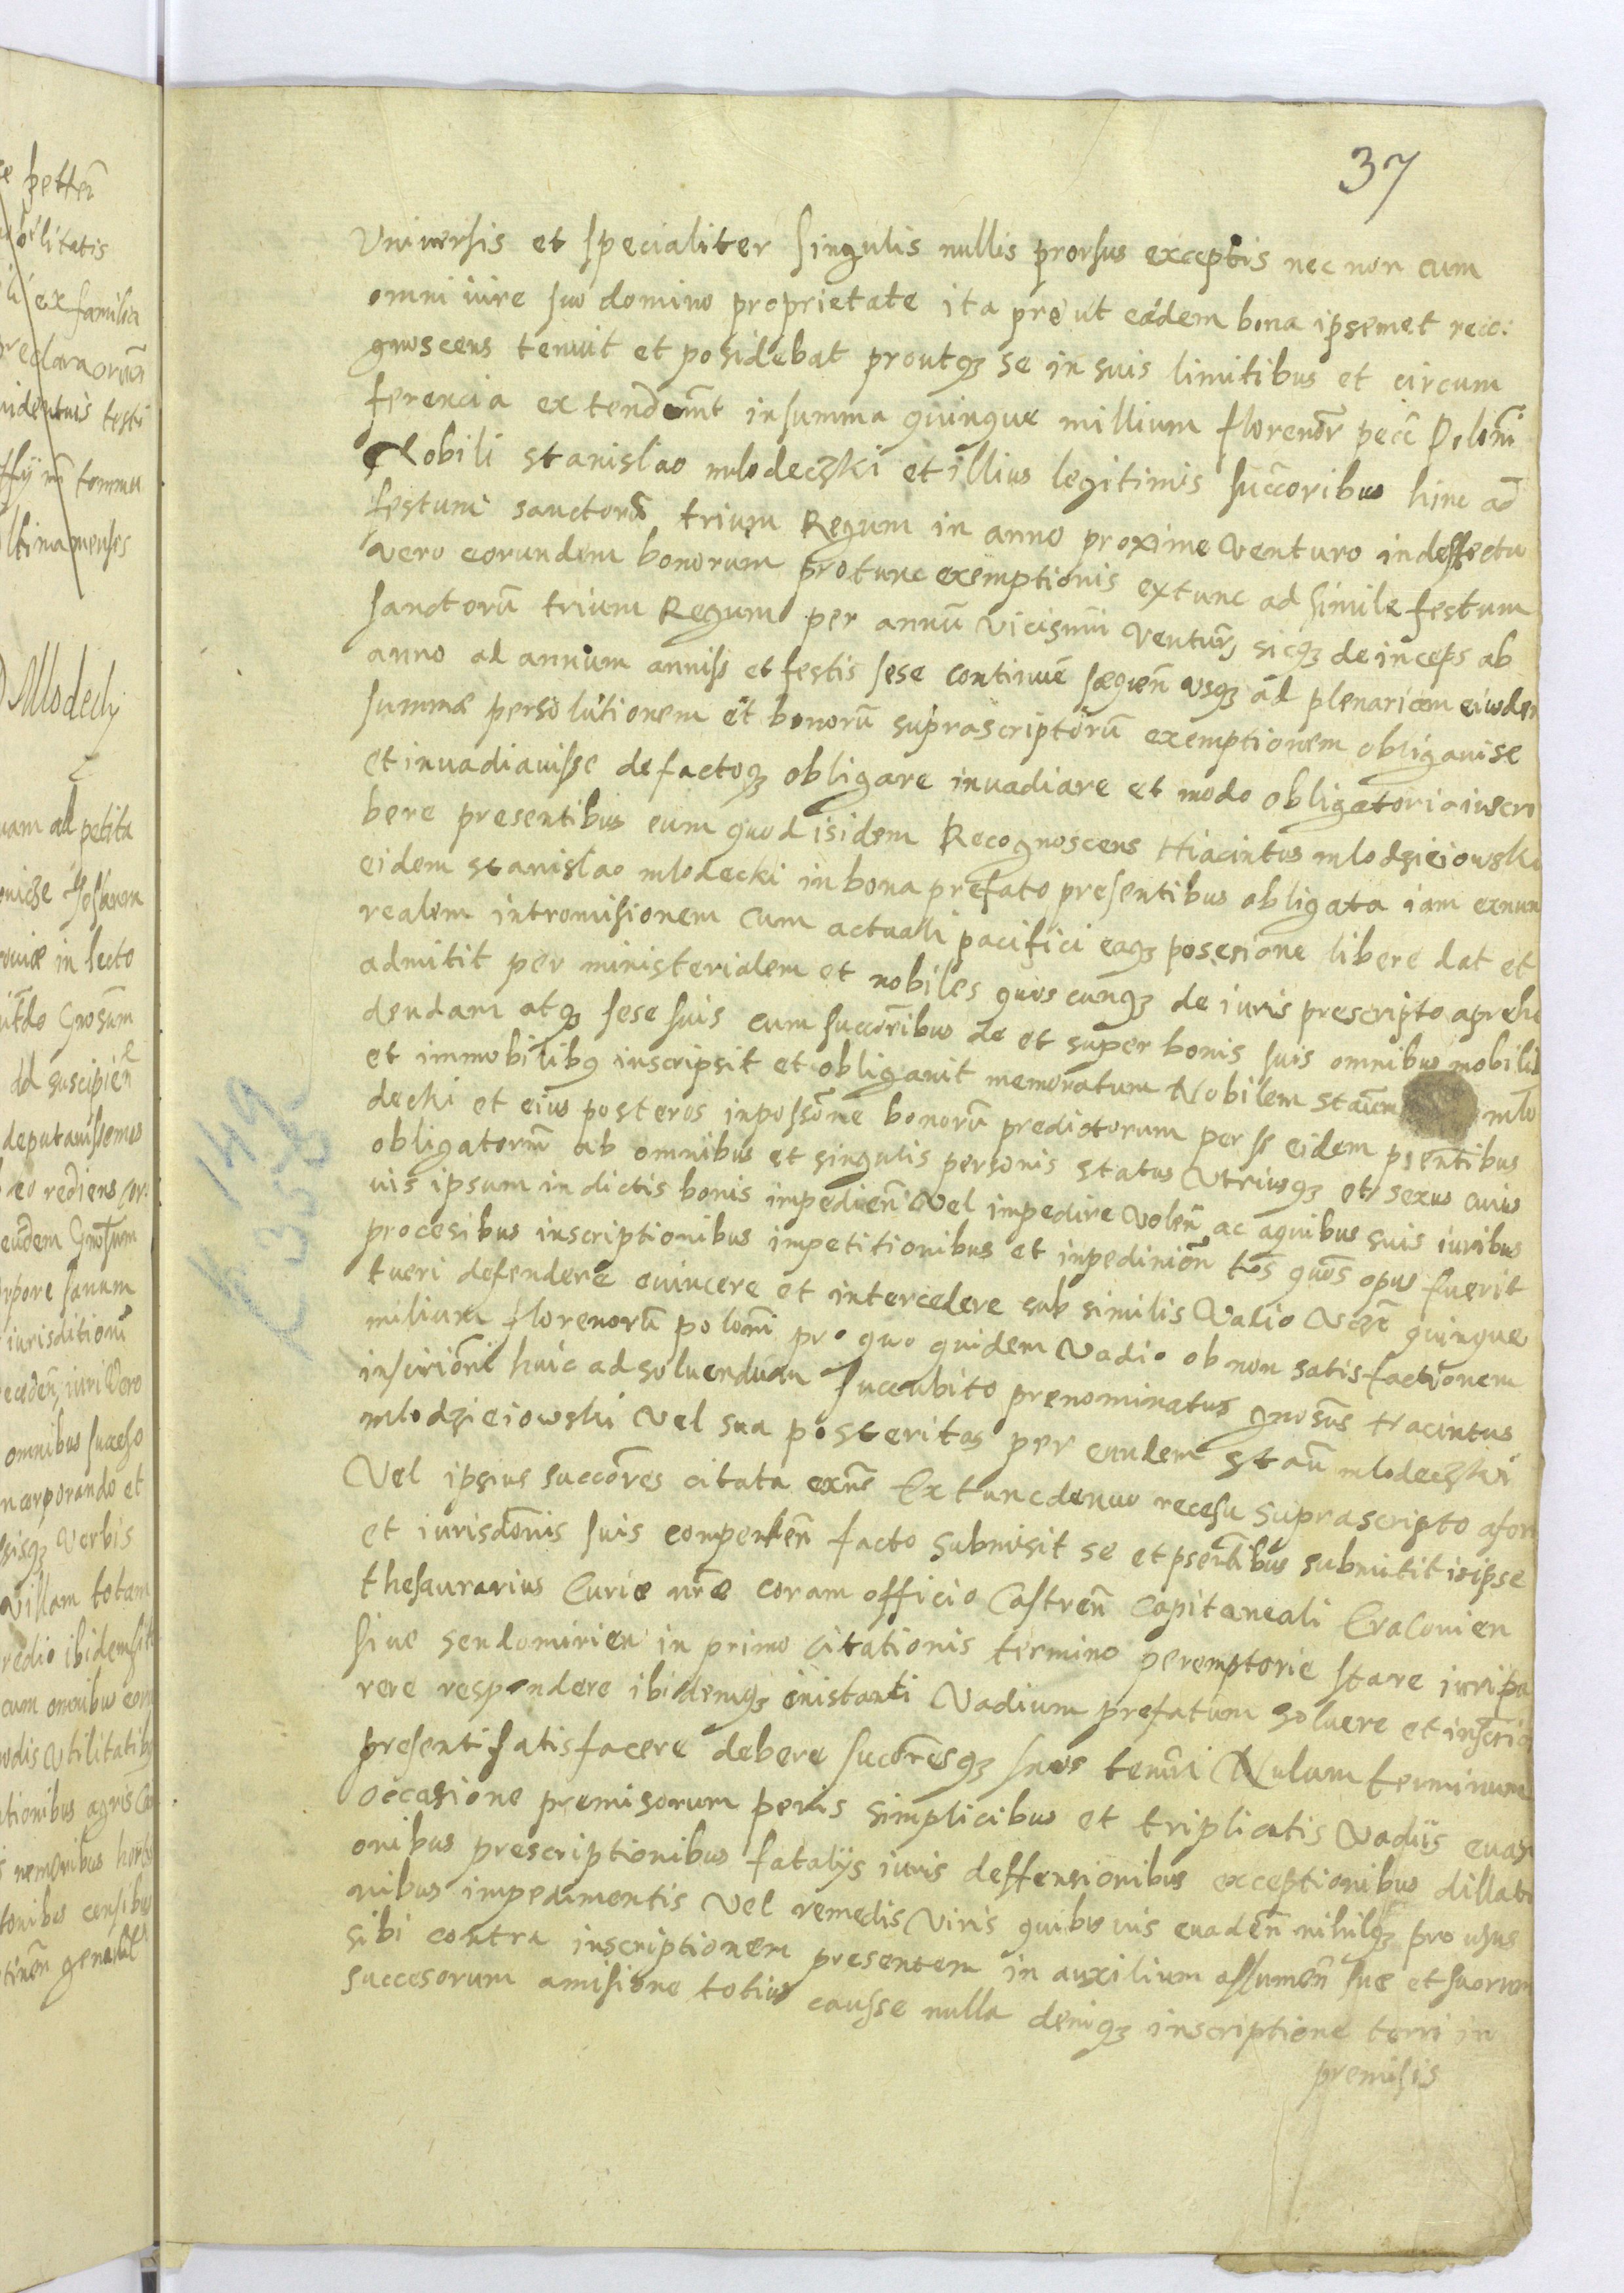 37
Universis et specialiter singulis nullis prorsus exceptis nec non cum
omni iure suo domino proprietate ita pro ut eadem bona ipsemet reco:
gnoscens tenuit et posidebat proutq3 se in suis limitibus et circum
ferencia extendunt in summa quinque millium florenor pecc Poloni
Nobili stanislao mlodeczki et illius legitimis succoribus hinc ad
festum sanctorū trium Regum in anno proxime venturo in deffectu
vero eorundem bonorum protunc exemptionis extunc ad simile festum
sanctorū trium Regum per annū vicissim ventur, sicq3 deinceps ab
anno ad annum annis et festis sese continue sequen̄ usq3 ad plenariam eiusdem
summæ persolutionem et bonorū suprascriptorū exemptionem obligauise
et inuadiauisse de factoq3 obligare inuadiare et modo obligatorio inscri
bere presentibus cum quod isidem Recognoscens Hiacintus mlodzieiowski
eidem stanislao mlodecki in bona prefato presentibus obligata iam exnun
realem intromisionem cum actuali pacifici eaq3 posesione libere dat et
admitit per ministerialem et nobiles quoscunq3 de iuris prescripto aprehe
dendam atq3 sese suis cum succoribus de et super bonis suis omnibus mobilib
et immobilibq inscripsit et obligauit memoratum Nobilem staūm mlo
decki et eius posteros in possone bonorū predictorum per se eidem psentibus
obligatorum ab omnibus et singulis personis status utriusq3 et sexus cuius
uis ipsum in dictis bonis impedien̄ vel impedire volen̄ ac aquibus suis iuribus
procesibus inscriptionibus impetitionibus et inpedimen̄ tos quos opus fuerit
tueri defendere euincere et intercedere sub similis Vadio quinque
milium florenorū poloni pro quo quidem vadio ob non satisfactionem
inscrioni huic ad soluendum succubito prenominatus gnosus Hiacintus
mlodzieiowski vel sua posteritas per eundem staū mlodeczki
Vel ipsius succores citata exn̄s Ex tunc denuo recesu suprascripto a foro
et iurisdonis suis conpeten̄ facto submisit se et psentibus submitit isipse
thesaurarius Curiæ nr̄æ coram officio Castren̄ Capitaneali Cracouien
siue sendomirien in primo citationis termino peremptorie stare iuripa
rere respondere ibidemq3 inistanti Vadium prefatum soluere et inscrio
presenti satisfacere debere succoresq3 suos teneri Nulum terminum
occasione premisorum penis simplicibus et triplicatis Vadiis euasi
onibus prescriptionibus fatalijs iuris deffensionibus exceptionibus dillati
onibus impedimentis vel remedis viris quibusuis euaden̄ nihilq3 pro usus
sibi contra inscriptionem presentem in auxilium assumen̄ sue et suorum
succesorum amisione totius causse nulla deniq3 inscriptione terri in
premisis